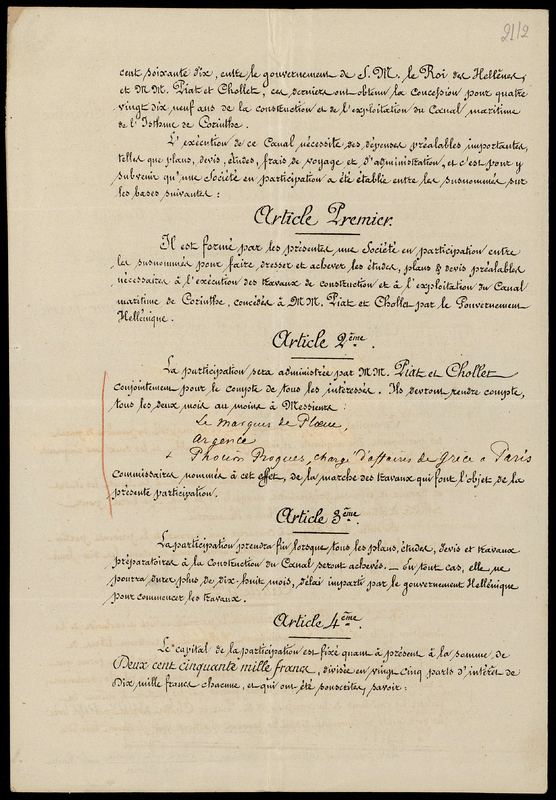 21/2
cent soixante dix, entre le gouvernement de S. M. le Roi des Hellènes,
et M M. Piat et Chollet, ces derniers ont obtenu la concession pour quatre
vingt dix neuf ans de la construction et de l'exploitation du Canal maritime
de l'Isthme de Corinthe.
L'exécution de ce Canal nécessite des dépenses préalables importantes,
telles que plans, devis, études, frais de voyage et d'administration, et c'est pour y
subvenir qu'une Société en participation a été établie entre les susnommés sur
les bases suivantes :
Article Premier.
Il est formé par les présentes une Société en participation entre
les susnommés pour faire dresser et achever les études, plans & devis préalables
nécessaires à l'exécution des travaux de construction et à l'exploitation du Canal
maritime de Corinthe, concédés à M M. Piat et Chollet par le Gouvernement
Hellénique.
Article 2ème.
La participation sera administrée par M M. Piat et Chollet
conjointement pour le compte de tous les intéressés. Ils devront rendre compte,
tous les deux mois au moins à Messieurs :
Le marquis de Plœuc,
Argence
+ Phocion Roques, chargé d'affaires de Grèce à Paris
Commissaires nommés à cet effet, de la marche des travaux qui font l'objet de la
présente participation.
Article 3ème.
La participation prendra fin lorsque tous les plans, études, devis et travaux
préparatoires à la construction du Canal seront achevés. — En tout cas, elle ne
pourra durer plus de dix-huit mois, délai imparti par le gouvernement Hellénique
pour commencer les travaux.
Article 4ème.
Le capital de la participation est fixé quant à présent à la somme de
Deux cent cinquante mille francs, divisée en vingt cinq parts d'intérêt de
Dix mille francs chacune, et qui ont été souscrites, savoir :